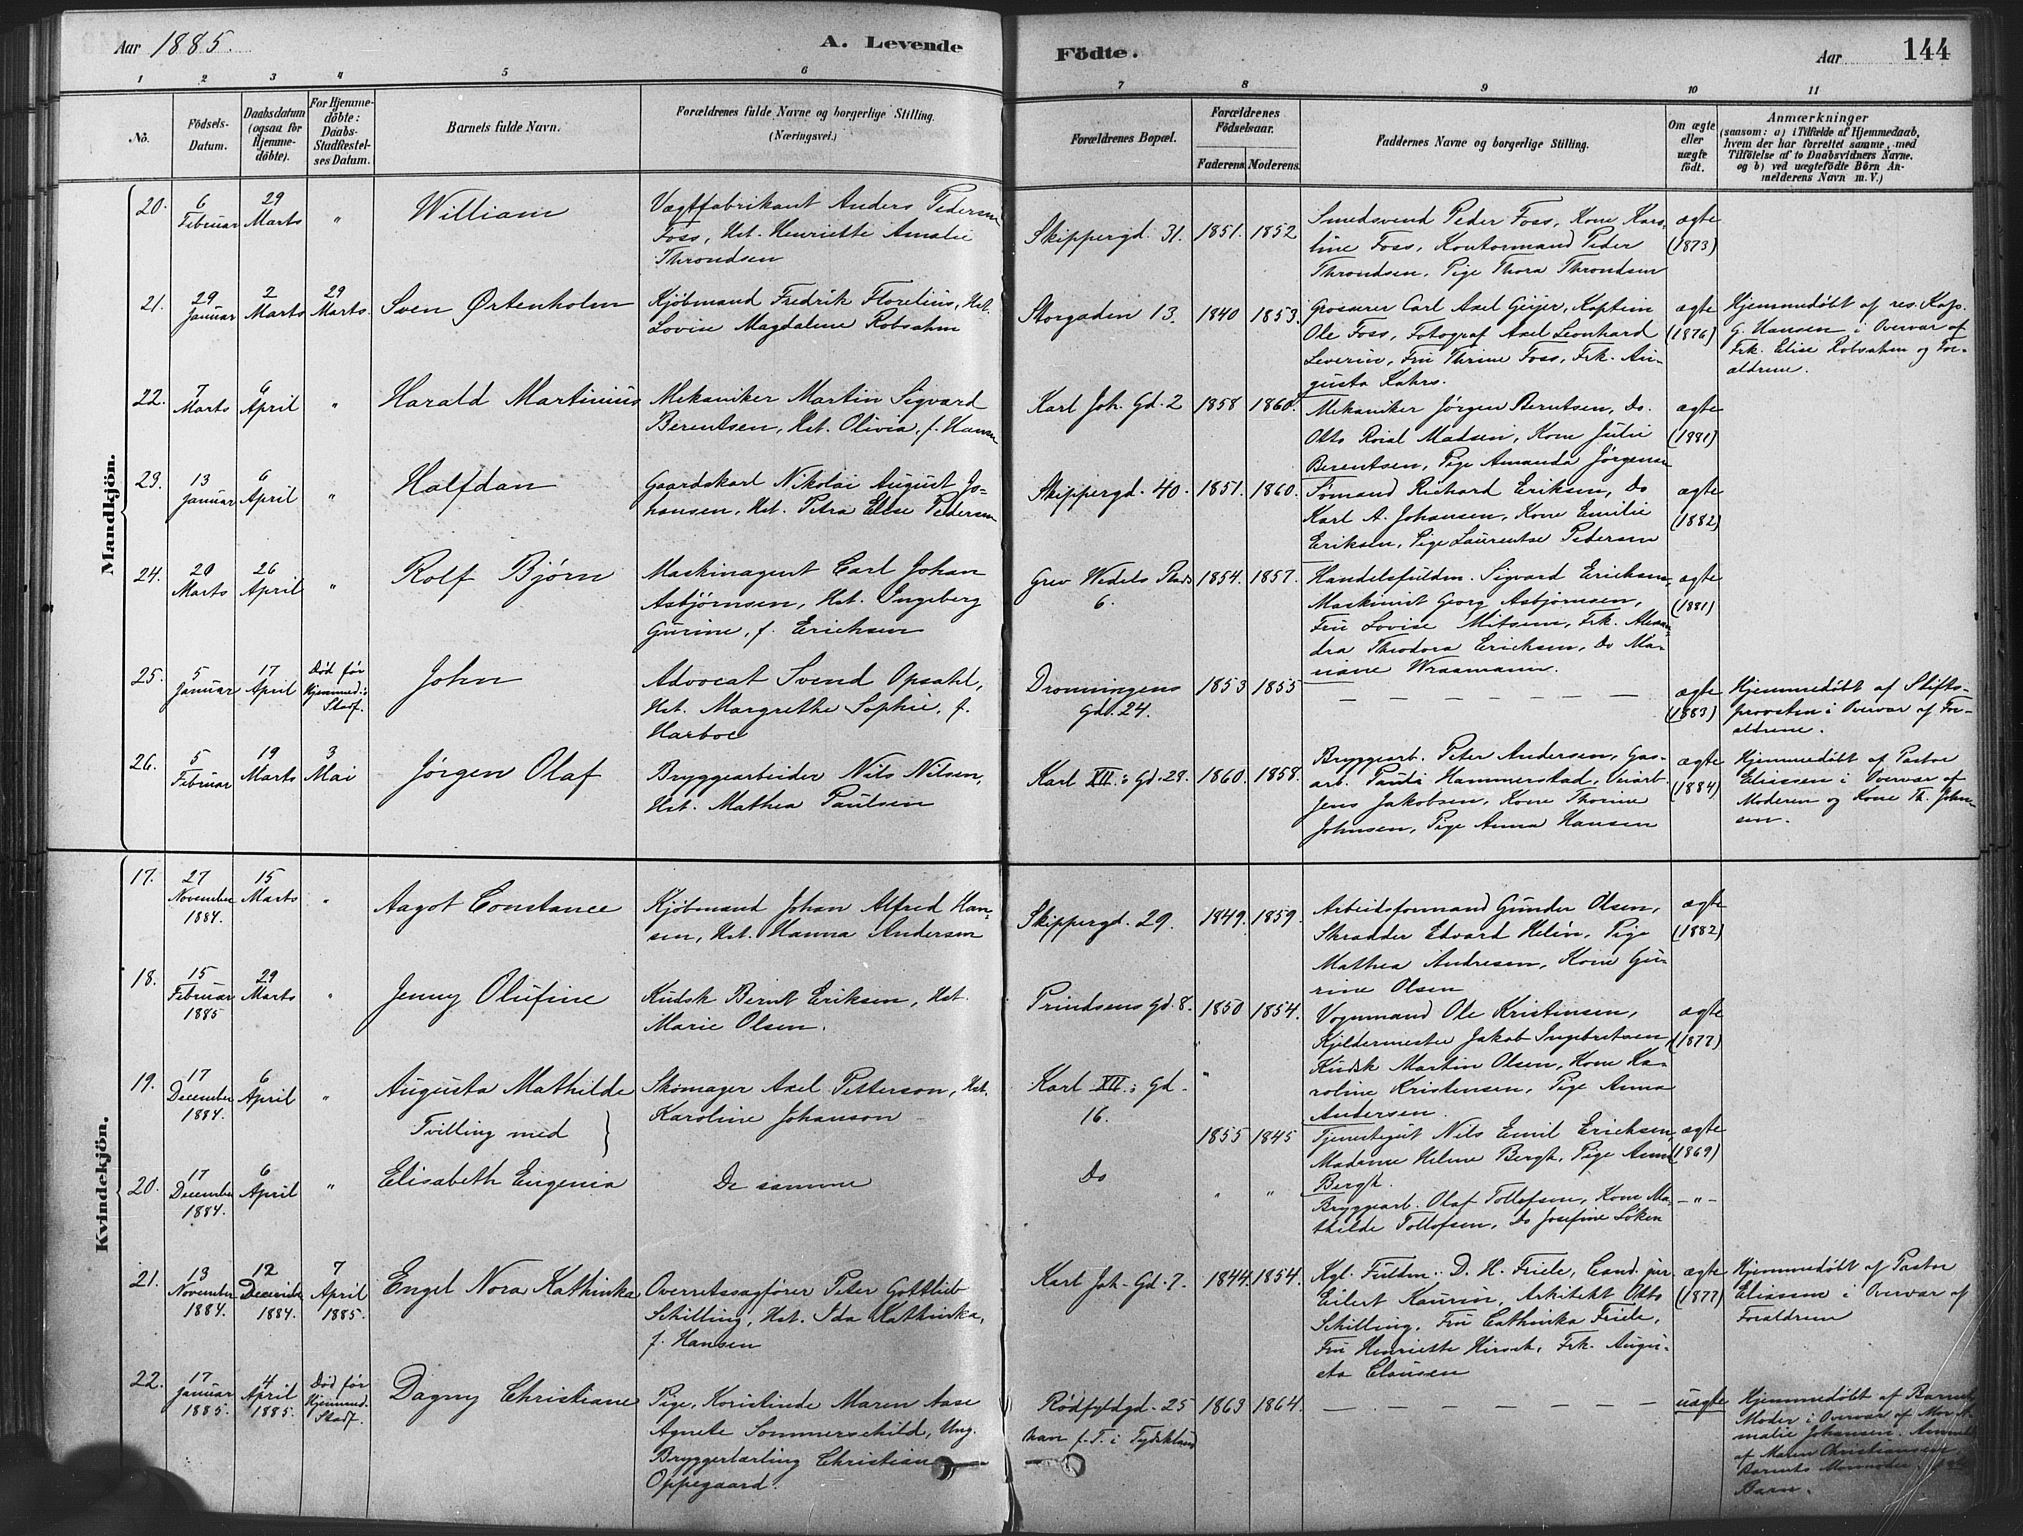 Aar 1885. A. Levende Födte. Aar 144
1 2 3 4 5 6 7 8 9 10 11
No. Födsels-Datum. Daabsdatum (ogsaa for Hjemme-döbte). For Hjemme-döbte: Daabs-Stadfæstel-ses Datum. Barnets fulde Navn. Forældrenes fulde Navne og borgerlige Stilling. (Næringsvei.) Forældrenes Bopæl. Forældrenes Födselsaar. Faderens. Moderens. Faddernes Navne og borgerlige Stilling. Om ægte eller uægte födt. Anmærkninger (saasom: a) i Tilfælde af Hjemmedaab, hvem der har forrettet samme, med Tilföielse af to Daabsvidners Navne. og b) ved uægtefödte Börn An-melderens Navn m. V.)
Mandkjön.
20. 6 Februar 29 Marts " William
Vægtfabrikant Anders Pedersen
Foss, Hst. Henriette Amalie
Throndsen
Skippergd. 31. 1851. 1852
Smedsvend Peder Foss, Kone Karo-
line Foss, Kontormand Peder
Throndsen, Pige Thora Throndsen
ægte (1873)
21. 29 Januar 2 Marts 29 Marts. Sven Ørtenholm
Kjöbmand Fredrik Florelius, Hst.
Lovise Magdalene Robsahm
Storgaden 13. 1840 1853.
Grosserer Carl Axel Geijer, Kaptein
Ole Foss, Fotograf Axel Leonhard
Leverin, Fru Thrine Foss, Frk. Au-
gusta Kahrs.
ægte (1876)
Hjemmedøbt af res. Kap.
G. Hansen i Overvær af
Frk. Elise Robsahm og For-
ældrene.
22. 7 Marts 6 April " Harald Martinius
Mekaniker Martin Sigvard
Berentsen, Hst. Olivia, f. Hansen
Karl Joh. Gd. 2 1858 1860.
Mekaniker Jørgen Berntsen, Do.
Otto Roial Madsen, Kone Julie
Berentsen, Pige Amanda Jørgensen
ægte (1881)
23. 13 Januar 6 April " Halfdan
Gaardskarl Nikolai August Jo-
hansen, Hst. Petra Elise Pedersen
Skippergd. 40. 1851. 1860.
Sømand Richard Eriksen, Do
Karl A. Johansen, Kone Emilie
Eriksen, Pige Laurentse Pedersen
ægte (1882)
24. 20 Marts 26 April " Rolf Bjørn
Maskinagent Carl Johan
Asbjørnsen, Hst. Ingeborg
Gurine, f. Erichsen
Grev Wedels Plads
6. 1854. 1857.
Handelsfuldm. Sigvard Erichsen,
Maskinist Georg Asbjørnsen,
Fru Lovise Nilsen, Frk. Alexan-
dra Theodora Erichsen, Do Ma-
riane Wraamann.
ægte (1881)
25. 5 Januar 17 April Død før Hjemmed:s Stadf. John
Advocat Svend Opsahl,
Hst. Margrethe Sophie, f.
Harboe
Dronningens
Gd. 24. 1853 1855
— — — — — — —
ægte (1883)
Hjemmedøbt af Stifts-
provsten i Overvær af For-
ældrene.
26. 5 Februar 19 Marts 3 Mai Jørgen Olaf
Bryggearbeider Nils Nilsen,
Hst. Mathea Paulsen
Karl XII.s Gd. 28. 1860. 1858.
Bryggearb. Peter Andersen, Gas-
arb. Hammerstad,
Jens Jakobsen, Kone Thorine
Johnsen, Pige Anna Hansen
ægte (1884)
Hjemmedøbt af Pastor
Eliassen i Overvær af
Moderen og Kone Th. John-
sen.
Kvindekjön.
17. 27 November 1884. 15 Marts " Aagot Constance
Kjöbmand Johan Alfred Han-
sen, Hst. Hanna Andersen
Skippergd. 29. 1849. 1859.
Arbeidsformand Gunder Olsen,
Skrædder Edvard Helin, Pige
Mathea Andresen, Kone Gu-
rine Olsen
ægte (1882)
18. 15 Februar 1885 29 Marts " Jenny Olufine
Kudsk Bernt Eriksen, Hst.
Marie Olsen.
Prindsens Gd. 8. 1850 1854.
Vognmand Ole Kristensen,
Kjeldermester Jakob Ingebretsen,
Kudsk Martin Olsen, Kone Ka-
roline Kristensen, Pige Anna
Andersen.
ægte (1877)
19. 17 December 1884. 6 April " Augusta Mathilde
Tvilling med }
Skomager Axel Petterson, Hst.
Karoline Johanson
Karl XII.s Gd.
16.
1855 1845
Tjenestegut Nils Emil Erichsen,
Madame Helene Bergh, Pige Anna
Bergh.
ægte (1869)
20. 17 December 1884. 6 April " Elisabeth Eugenia
De samme
Do " "
Bryggearb. Olaf Tollefsen, Kone Ma-
thilde Tollofsen, Do Josefine Løken
—"—
21. 13 November 1884. 12 December 1884. 7 April 1885. Engel Nora Kathinka
Overretssagfører Peter Gottlieb
Schilling, Hst. Ida Kathinka,
f. Hansen
Karl Joh. Gd. 7. 1844. 1854.
Kgl. Fuldm. D. H. Friele, Cand. jur
Eilert Kaurin, Arkitekt Otto
Schilling, Fru Cathinka Friele,
Fru Henriette Hirsch, Frk. Augu-
sta Clausen
ægte (1877)
Hjemmedøbt af Pastor
Eliassen i Overvær af
Forældrene
22. 17 Januar 1885. 4 April 1885. Død før Hjemmed. Stadf. Dagny Christiane
Pige, Maren Aase
Agnete Sommerschild, Ung.
Bryggerlærling Christian
Oppegaard.
Rødfyldgd. 25
han f. T. i Tydskland
1863 1864.
— — — — — — —
uægte
Hjemmedøbt af Barnets
Moder i Overvær af
malie Johansen. Anmeldt
af Maren Christiansen
Barnets Mormoder
Barn.